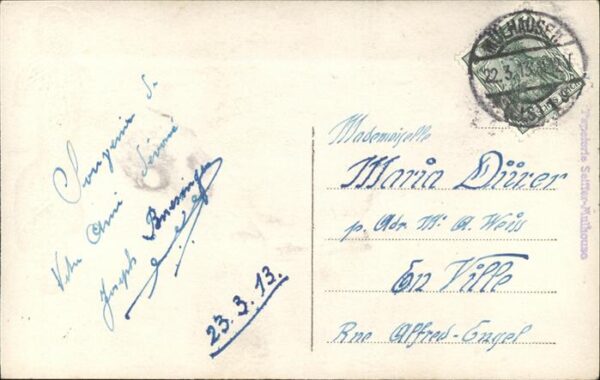 Souvenir de
Votre Ami dévoué
Joseph
23.3.13.
MÜLHAUSEN
22.3.13
Mademoiselle
Maria Dürer
p. Adr. Mr. A. Weiss
En Ville
Rue Alfred-Engel
Papeterie Seiffer-Mulhouse